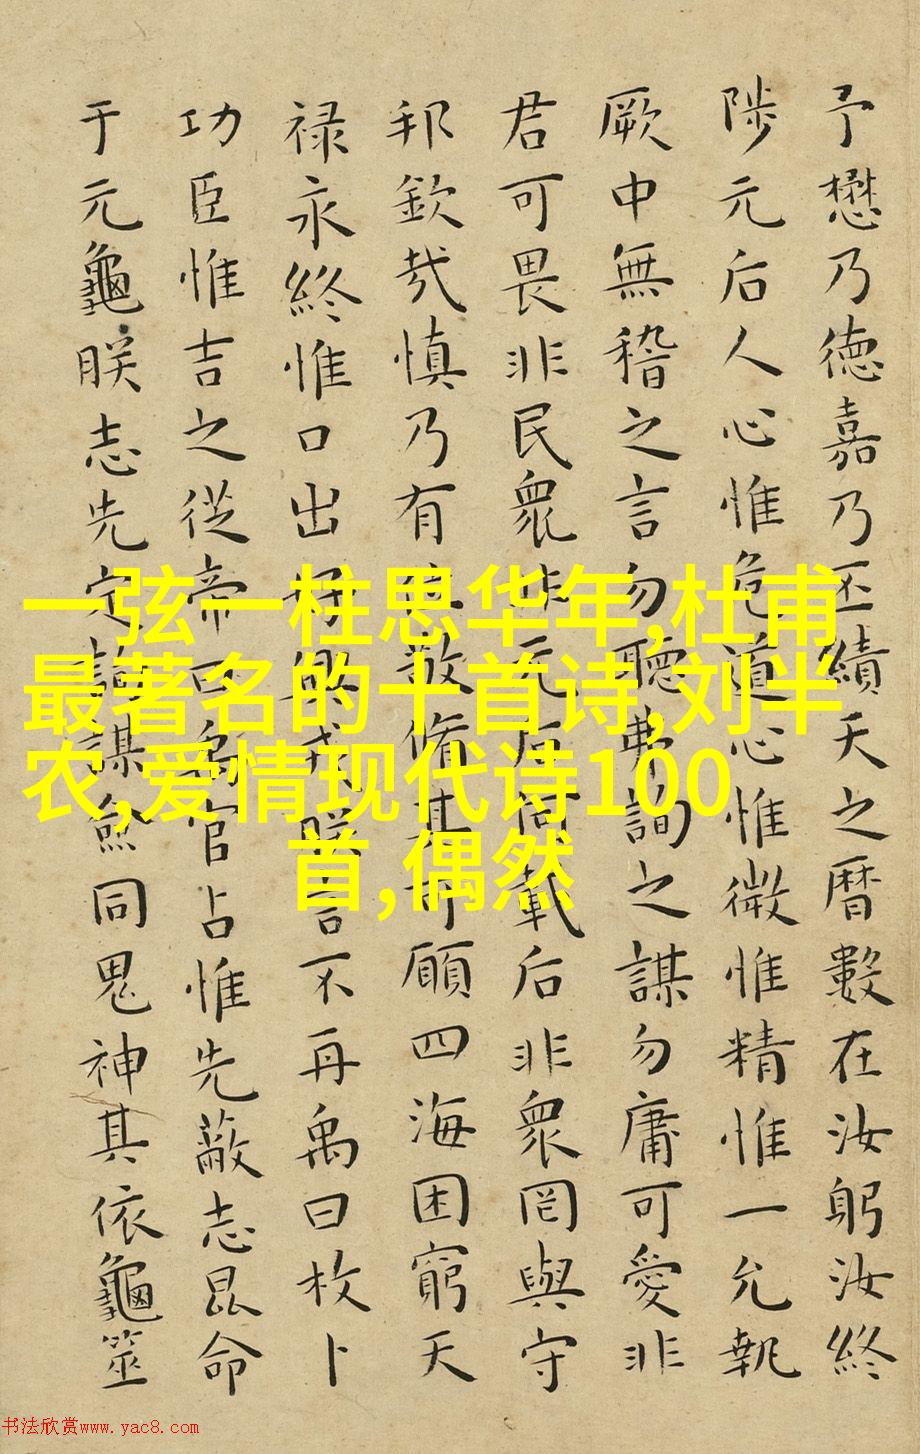 予懋乃德嘉乃丕績天之曆數在汝躬汝終
陟元后人心惟危道心惟微惟精惟一允執
厥中無稽之言勿聽弗詢之謀勿庸可愛非
君可畏非民衆非元后何載后非衆罔與守
邦欽哉慎乃有位敬脩其可願四海困窮天
禄永終惟口出好興戎朕言不再禹曰枚卜
功臣惟吉之從帝曰禹官占惟先蔽志昆命
于元龜朕志先定詢謀僉同鬼神其依龜筮
一弦一柱思华年,杜甫
最著名的十首诗,刘半
农,爱情现代诗100
首,偶然
书法欣赏www.yac8.com